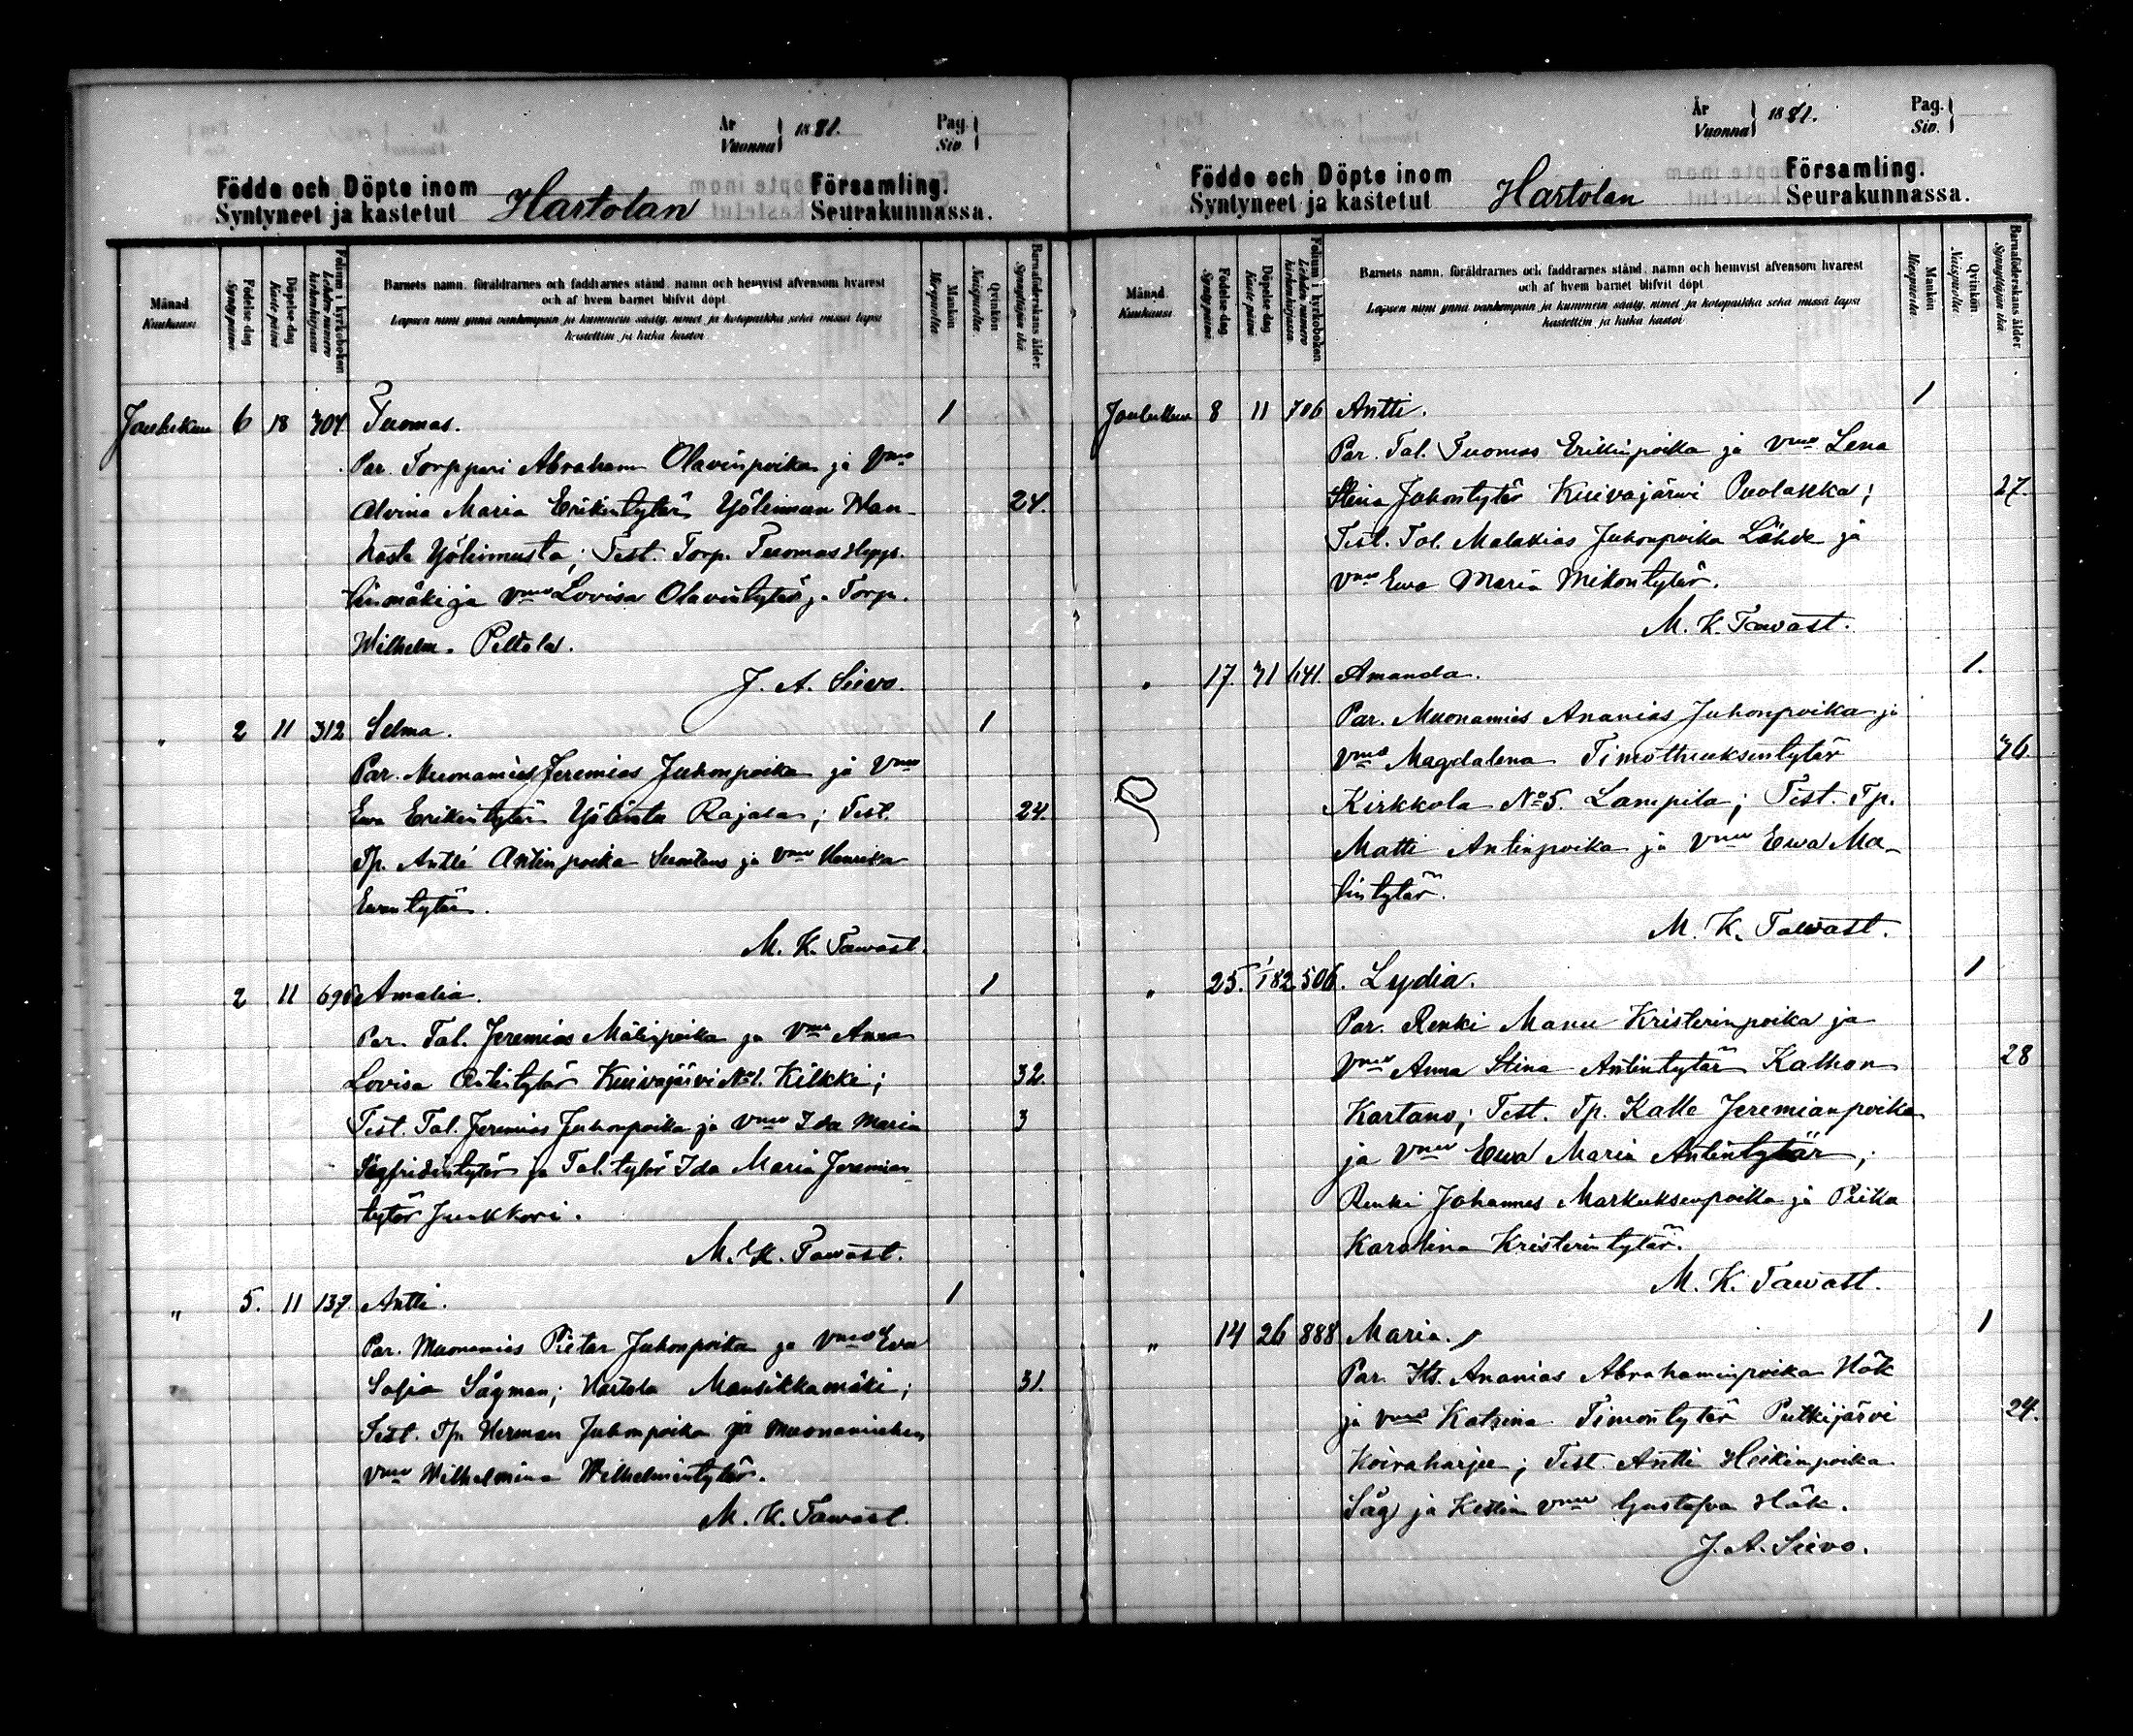 År Vuonna 1881. Pag. Siv.
Födde och Döpte inom Hartolan Församling.
Syntyneet ja kastetut Seurakunnassa.
Månad Kuukausi
Födelse-dag Syntypäivä
Döpelse-dag Kaste päivä
Folium i kyrkoboken Lehden numero kirkonkirjassa
Barnets namn, föräldrarnes och faddrarnes stånd, namn och hemvist äfvensom hvarest
och af hvem barnet blifvit döpt
Lapsen nimi ynnä vanhempain ja kummein sääty, nimet ja kotopaikka sekä missä lapsi
kastettiin ja kuka kastoi
Mankön Miespuolta
Qvinkön Naispuolta
Barnaföderskans ålder Synnyttäjän ikä
Joulukuu 6 18 704 Tuomas. 1
Par. Torppari Abraham Olavinpoika ja Vmo
Alvina Maria Erikintytär Yöleinuun 24.
Test. Torp. Tuomas
ja Vmo Lovisa Olavintytär ja Torp.
Wilhelm Peltola.
J. A. Siivo.
" 2 11 312 Selma. 1
Par. Muonamies Jeremias Juhonpoika ja Vmo
Ewa Erikintytär Rajala; Test. 24.
Tp. Antti Antinpoika ja Vmo Henrika
M. K. Tawast.
2 11 695 Amalia. 1
Par. Tal. Jeremias ja Vmo Anna
Lovisa Antintytär Kuivajärvi No 1. Kilkki; 32
Test. Tal. Jeremias Juhonpoika ja Vmo Ida Maria 3
Sigfridintytär ja Tal. tytär Ida Maria Jeremian
tytär Junkkari.
M. K. Tawast.
" 5. 11 137. Antti. 1
Par. Muonamies Pietar Juhonpoika ja Vmo Eva
Sofia Sågman; Hartola Mansikkamäki; 31.
Test. Tp. Herman Juhonpoika ja Muonamiehen
Vmo Wilhelmina Wilhelmintytär.
M. K. Tawast.
År Vuonna 1881. Pag. Siv.
Födde och Döpte inom Hartolan Församling.
Syntyneet ja kastetut Seurakunnassa.
Månad Kuukausi
Födelse-dag Syntypäivä
Döpelse-dag Kaste päivä
Folium i kyrkoboken Lehden numero kirkonkirjassa
Barnets namn, föräldrarnes och faddrarnes stånd, namn och hemvist äfvensom hvarest
och af hvem barnet blifvit döpt
Lapsen nimi ynnä vanhempain ja kummein sääty, nimet ja kotopaikka sekä missä lapsi
kastettiin ja kuka kastoi
Mankön Miespuolta
Qvinkön Naispuolta
Barnaföderskans ålder Synnyttäjän ikä
Joulukuu 8 11 706 Antti. 1
Par. Tal. Tuomas Erikinpoika ja Vmo Lena
Stina Juhontytär Kuivajärwi Puolakka; 27.
Test. Tal. Malakias Juhonpoika Lähde ja
Vmo Ewa Maria Mikontytär.
M. K. Tawast.
" 17. 141. Amanda. 1.
Par. Muonamies Ananias Juhonpoika ja
Vmo Magdalena Timotheuksentytär 46.
Kirkkola No 5. Lampila; Test. Tp.
Matti Antinpoika ja Vmo Ewa Ma-
tintytär.
M. K. Tawast.
" 25. 1/1 82 506. Lydia. 1
Par. Renki Manu Kristerinpoika ja
Vmo Anna Stina Antintytär Kalhon 28
Kartano; Test. Tp. Kalle Jeremianpoika
ja Vmo Ewa Maria Antintytär;
Renki Johannes Markuksenpoika ja Piika
Karolina Kristerintytär.
M. K. Tawast.
" 14 26 888 Maria. 1
Par. Its. Ananias Abrahaminpoika Hök
ja Vmo Katrina Timontytär Putkijärvi 24.
Koiraharju; Test. Antti Heikinpoika
Såg ja Vmo Gustafva Hök.
J. A. Siivo.